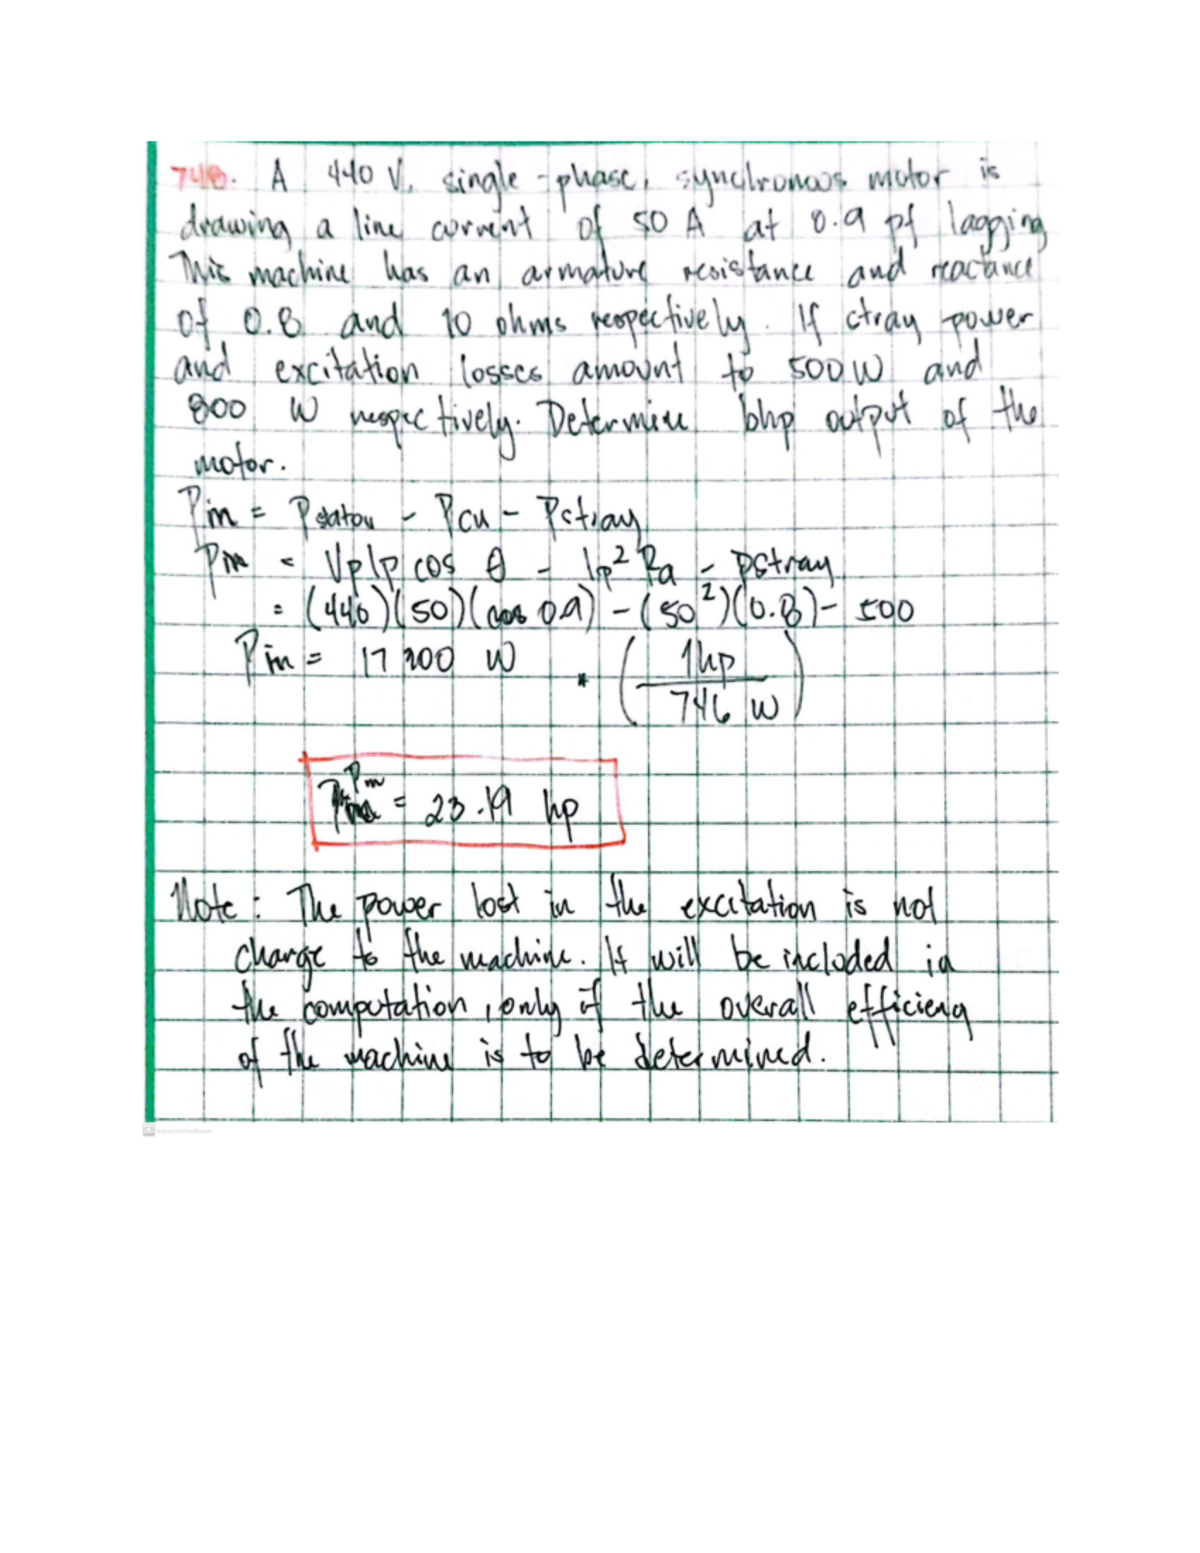 748. A 440 V, single-phase, synchronous motor is
drawing a line current of 50 A at 0.9 pf lagging
This machine has an armature resistance and reactance
of 0.8 and 10 ohms respectively. If stray power
and excitation losses amount to 500 W and
800 W respectively. Determine bhp output of the
motor.
Pm = Pstator - Pcu - Pstray
Pm = VpIp cos θ - Ip² Ra - Pstray
= (440)(50)(cos 0.9) - (50²)(0.8) - 500
Pm = 17 300 W * (1hp / 746 W)
Pm = 23.19 hp
Note: The power lost in the excitation is not
charge to the machine. It will be included in
the computation, only if the overall efficiency
of the machine is to be determined.